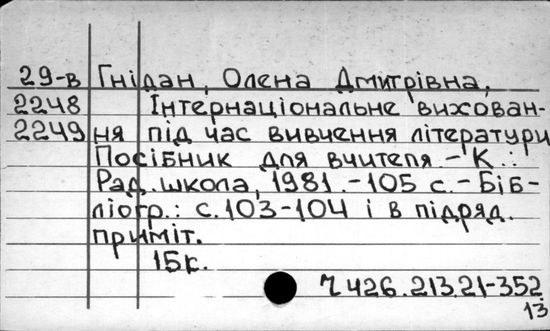 29-в Гнідан, Олена Дмитрівна,
2248 Інтернаціональне вихован-
2249 ня під час вивчення літератури
Посібник для вчителя - К.:
Рад. школа, 1981. - 105 с. - Біб-
ліогр.: с. 103-104 і в підряд.
приміт.
15к.
Ч426.213.21-352
13